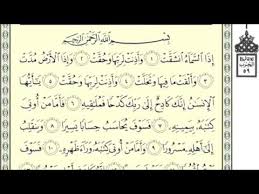 بِسْمِ ٱللَّهِ ٱلرَّحْمَٰنِ ٱلرَّحِيمِ
إِذَا ٱلسَّمَآءُ ٱنشَقَّتْ ١ وَأَذِنَتْ لِرَبِّهَا وَحُقَّتْ ٢ وَإِذَا ٱلْأَرْضُ مُدَّتْ
٣ وَأَلْقَتْ مَا فِيهَا وَتَخَلَّتْ ٤ وَأَذِنَتْ لِرَبِّهَا وَحُقَّتْ ٥ يَٰٓأَيُّهَا
ٱلْإِنسَٰنُ إِنَّكَ كَادِحٌ إِلَىٰ رَبِّكَ كَدْحًا فَمُلَٰقِيهِ ٦ فَأَمَّا مَنْ أُوتِىَ
كِتَٰبَهُۥ بِيَمِينِهِۦ ٧ فَسَوْفَ يُحَاسَبُ حِسَابًا يَسِيرًا ٨ وَيَنقَلِبُ
إِلَىٰٓ أَهْلِهِۦ مَسْرُورًا ٩ وَأَمَّا مَنْ أُوتِىَ كِتَٰبَهُۥ وَرَآءَ ظَهْرِهِۦ ١٠ فَسَوْفَ
٥٩